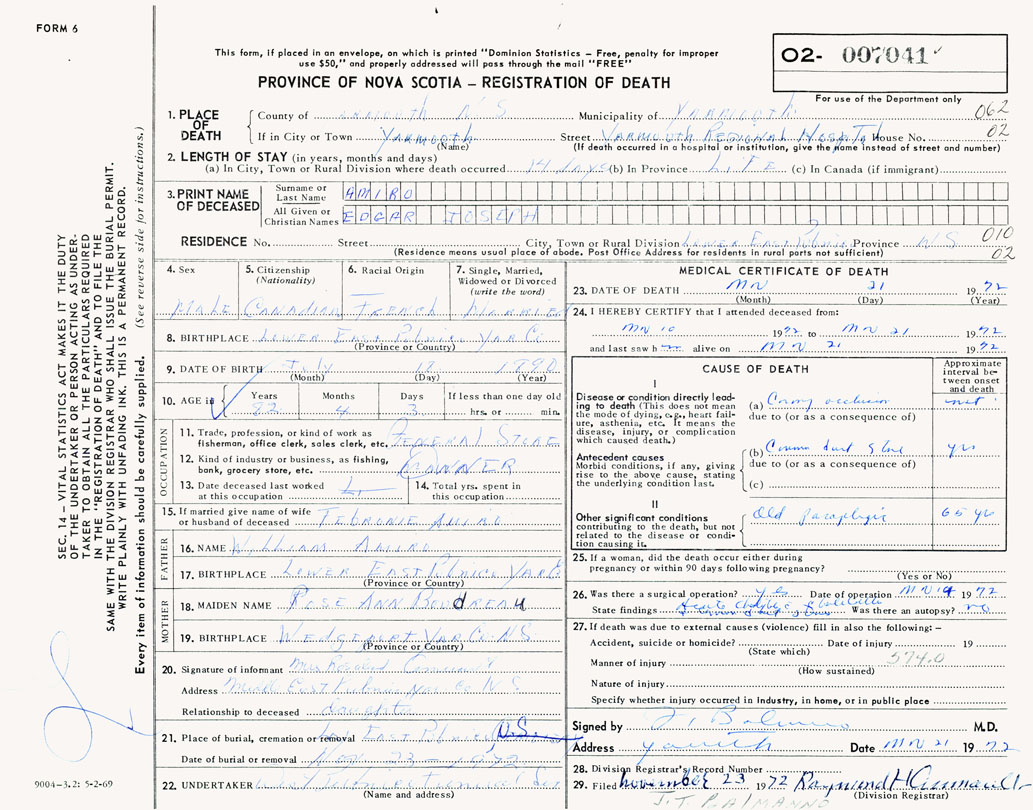 FORM 6
This form, if placed in an envelope, on which is printed "Dominion Statistics – Free, penalty for improper
use $50," and properly addressed will pass through the mail "FREE"
PROVINCE OF NOVA SCOTIA – REGISTRATION OF DEATH
O2- 007041
For use of the Department only
1. PLACE OF DEATH
County of N S Municipality of Yarmouth 062
If in City or Town Yarmouth Street Yarmouth Regional Hospital House No. 02
(Name) (If death occurred in a hospital or institution, give the name instead of street and number)
2. LENGTH OF STAY (in years, months and days)
(a) In City, Town or Rural Division where death occurred 14 days (b) In Province Life (c) In Canada (if immigrant)
3. PRINT NAME OF DECEASED
Surname or Last Name AMIRO
All Given or Christian Names EDGAR JOSEPH
RESIDENCE No. Street City, Town or Rural Division Lower East Pubnico Province N S 010
(Residence means usual place of abode. Post Office Address for residents in rural parts not sufficient) 02
SEC. 14 – VITAL STATISTICS ACT MAKES IT THE DUTY
OF THE UNDERTAKER OR PERSON ACTING AS UNDER-
TAKER TO OBTAIN ALL THE PARTICULARS REQUIRED
IN THE "REGISTRATION OF DEATH" AND TO FILE THE
SAME WITH THE DIVISION REGISTRAR WHO SHALL ISSUE THE BURIAL PERMIT.
WRITE PLAINLY WITH UNFADING INK. THIS IS A PERMANENT RECORD.
Every item of information should be carefully supplied. (See reverse side for instructions.)
4. Sex 5. Citizenship (Nationality) 6. Racial Origin 7. Single, Married, Widowed or Divorced (write the word)
Male Canadian French Married
8. BIRTHPLACE Lower East Pubnico Yar Co
(Province or Country)
9. DATE OF BIRTH July 18 1890
(Month) (Day) (Year)
10. AGE in Years Months Days If less than one day old
82 4 3 hrs. or min.
OCCUPATION
11. Trade, profession, or kind of work as
fisherman, office clerk, sales clerk, etc. General Store
12. Kind of industry or business, as fishing,
bank, grocery store, etc. Owner
13. Date deceased last worked
at this occupation
14. Total yrs. spent in
this occupation
15. If married give name of wife
or husband of deceased Amiro
FATHER
16. NAME William Amiro
17. BIRTHPLACE Lower East Pubnico Yar
(Province or Country)
MOTHER
18. MAIDEN NAME Rose Ann Boudreau
19. BIRTHPLACE Wedgeport Yar Co. N S
(Province or Country)
20. Signature of informant Mrs
Address East Pubnico Yar Co N S
Relationship to deceased daughter
21. Place of burial, cremation or removal East Pubnico N.S.
Date of burial or removal Nov. 23 – 1972
22. UNDERTAKER
(Name and address)
9004-3.2: 5-2-69
MEDICAL CERTIFICATE OF DEATH
23. DATE OF DEATH 21 1972
(Month) (Day) (Year)
24. I HEREBY CERTIFY that I attended deceased from:
10 1972 to 21 1972
and last saw h alive on 21 1972
CAUSE OF DEATH
Approximate interval between onset and death
I
Disease or condition directly lead-
ing to death (This does not mean
the mode of dying, e.g., heart fail-
ure, asthenia, etc. It means the
disease, injury, or complication
which caused death.)
(a) occlusion
due to (or as a consequence of)
Antecedent causes
Morbid conditions, if any, giving
rise to the above cause, stating
the underlying condition last.
(b) Common duct stone yrs
due to (or as a consequence of)
(c)
II
Other significant conditions
contributing to the death, but not
related to the disease or condi-
tion causing it.
Old paraplegic 65 yrs
25. If a woman, did the death occur either during
pregnancy or within 90 days following pregnancy?
(Yes or No)
26. Was there a surgical operation? yes Date of operation 1972
State findings Was there an autopsy? no
27. If death was due to external causes (violence) fill in also the following: –
Accident, suicide or homicide? Date of injury 19
(State which) 574.0
Manner of injury
(How sustained)
Nature of injury
Specify whether injury occurred in industry, in home, or in public place
Signed by M.D.
Address Date 21 1972
28. Division Registrar's Record Number
29. Filed November 23 1972 Raymond H
(Division Registrar)